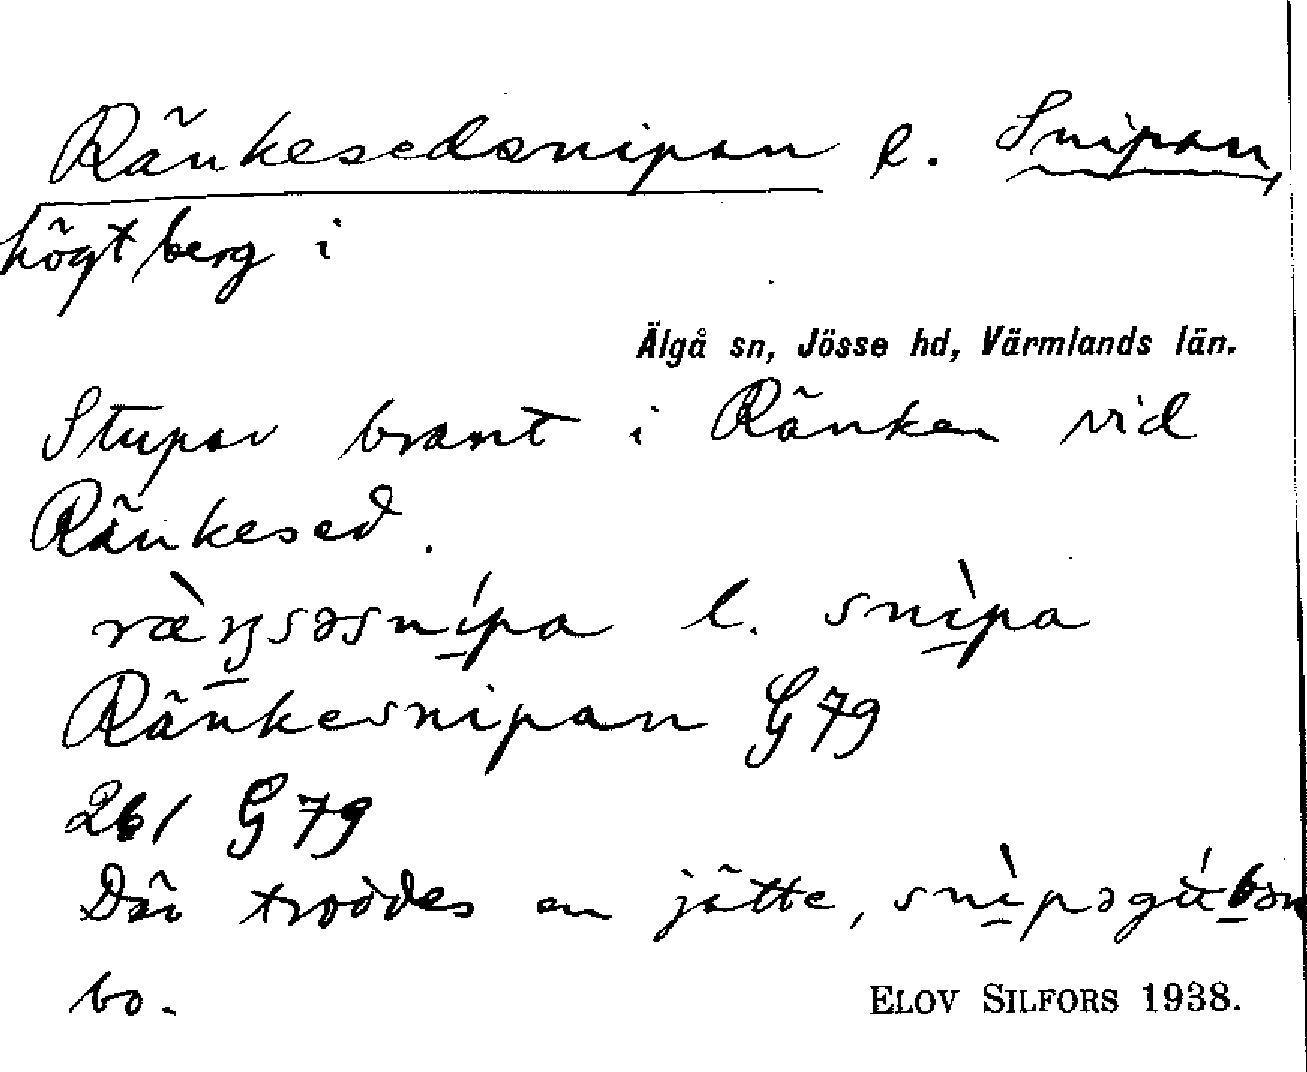 Ränkesedsnipan l. Snipan,
högt berg i
Älgå sn, Jösse hd, Värmlands län.
Stupar brant i Ränken vid
Ränkesed.
ræ̀ŋsəsnípa l. snìpa
Ränkesnipan G79
261 G79
Där troddes en jätte, snìpəgúbən
bo.
ELOV SILFORS 1938.